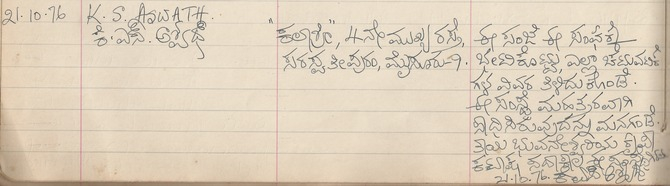 21.10.76
K. S. ASWATH.
ಕೆ. ಎಸ್. ಅಶ್ವಥ್
"ಕಲಾಶ್ರೀ", 4-ನೇ ಮುಖ್ಯ ರಸ್ತೆ,
ಸರಸ್ವತೀಪುರಂ, ಮೈಸೂರು-9.
ಈ ಸಂಜೆ ಈ ಸಂಘಕ್ಕೆ
ಭೇಟಿಕೊಟ್ಟು ಎಲ್ಲಾ ಚಟುವಟಿಕೆ
ಗಳ ವಿವರ ತಿಳಿದುಕೊಂಡೆ.
ಈ ಸಂಸ್ಥೆ ಮಹತ್ತರವಾಗಿ
ಮನಗಂಡೆ.
ತಾಯಿ ಭುವನೇಶ್ವರಿಯ
21.10.76.